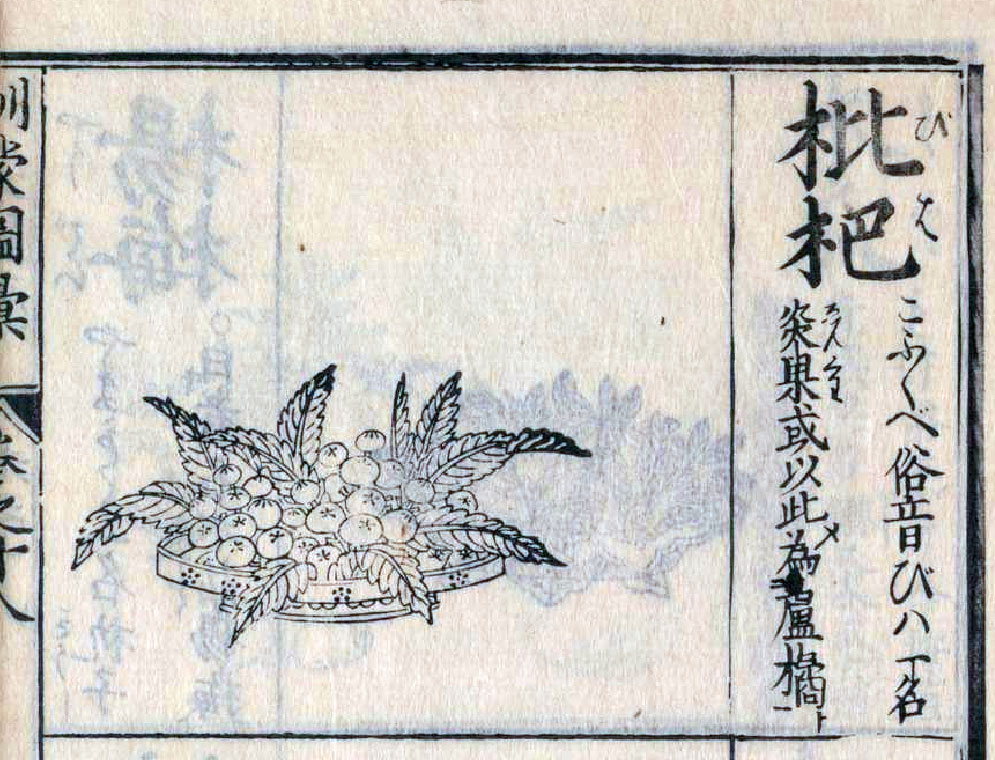 枇杷
びは
こふくべ俗音びハ一名
炎果或以此為盧橘
えんくわ
訓蒙圖彙 巻之十八